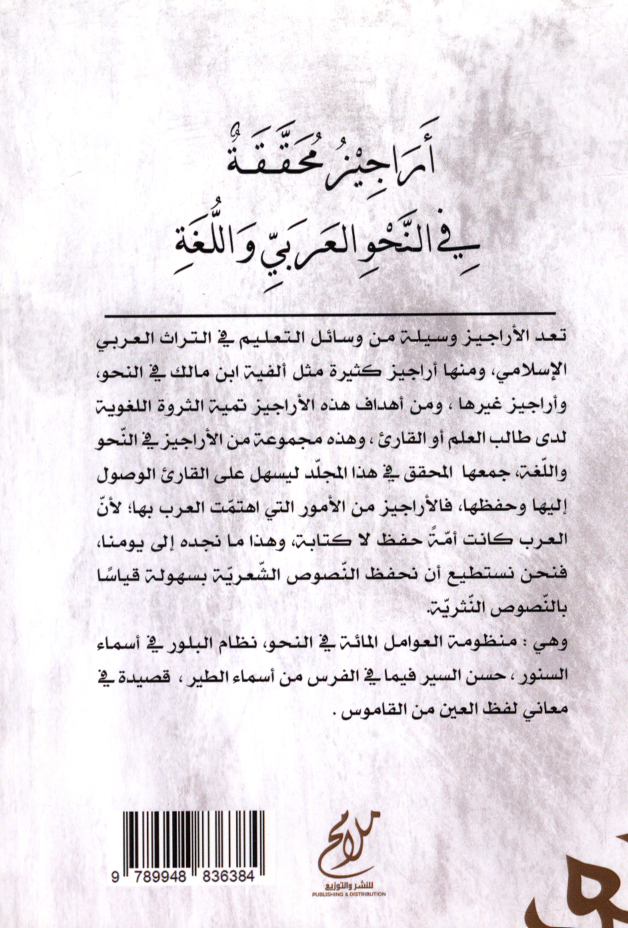 أَرَاجِيْزُ مُحَقَّقَةٌ
فِي النَّحْوِ العَرَبيِّ وَاللُّغَةِ
تعد الأراجيز وسيلة من وسائل التعليم في التراث العربي
الإسلامي، ومنها أراجيز كثيرة مثل ألفية ابن مالك في النحو،
وأراجيز غيرها ، ومن أهداف هذه الأراجيز تمية الثروة اللغوية
لدى طالب العلم أو القارئ ، وهذه مجموعة من الأراجيز في النّحو
واللّغة، جمعها المحقق في هذا المجلّد ليسهل على القارئ الوصول
إليها وحفظها، فالأراجيز من الأمور التي اهتمّت العرب بها؛ لأنّ
العرب كانت أمّةً حفظ لا كتابة، وهذا ما نجده إلى يومنا،
فنحن نستطيع أن نحفظ النّصوص الشّعريّة بسهولة قياسًا
بالنّصوص النّثريّة.
وهي : منظومة العوامل المائة في النحو، نظام البلور في أسماء
السنور ، حسن السير فيما في الفرس من أسماء الطير ، قصيدة في
معاني لفظ العين من القاموس .
ملامح
للنشر والتوزيع
PUBLISHING & DISTRIBUTION
9 789948 836384